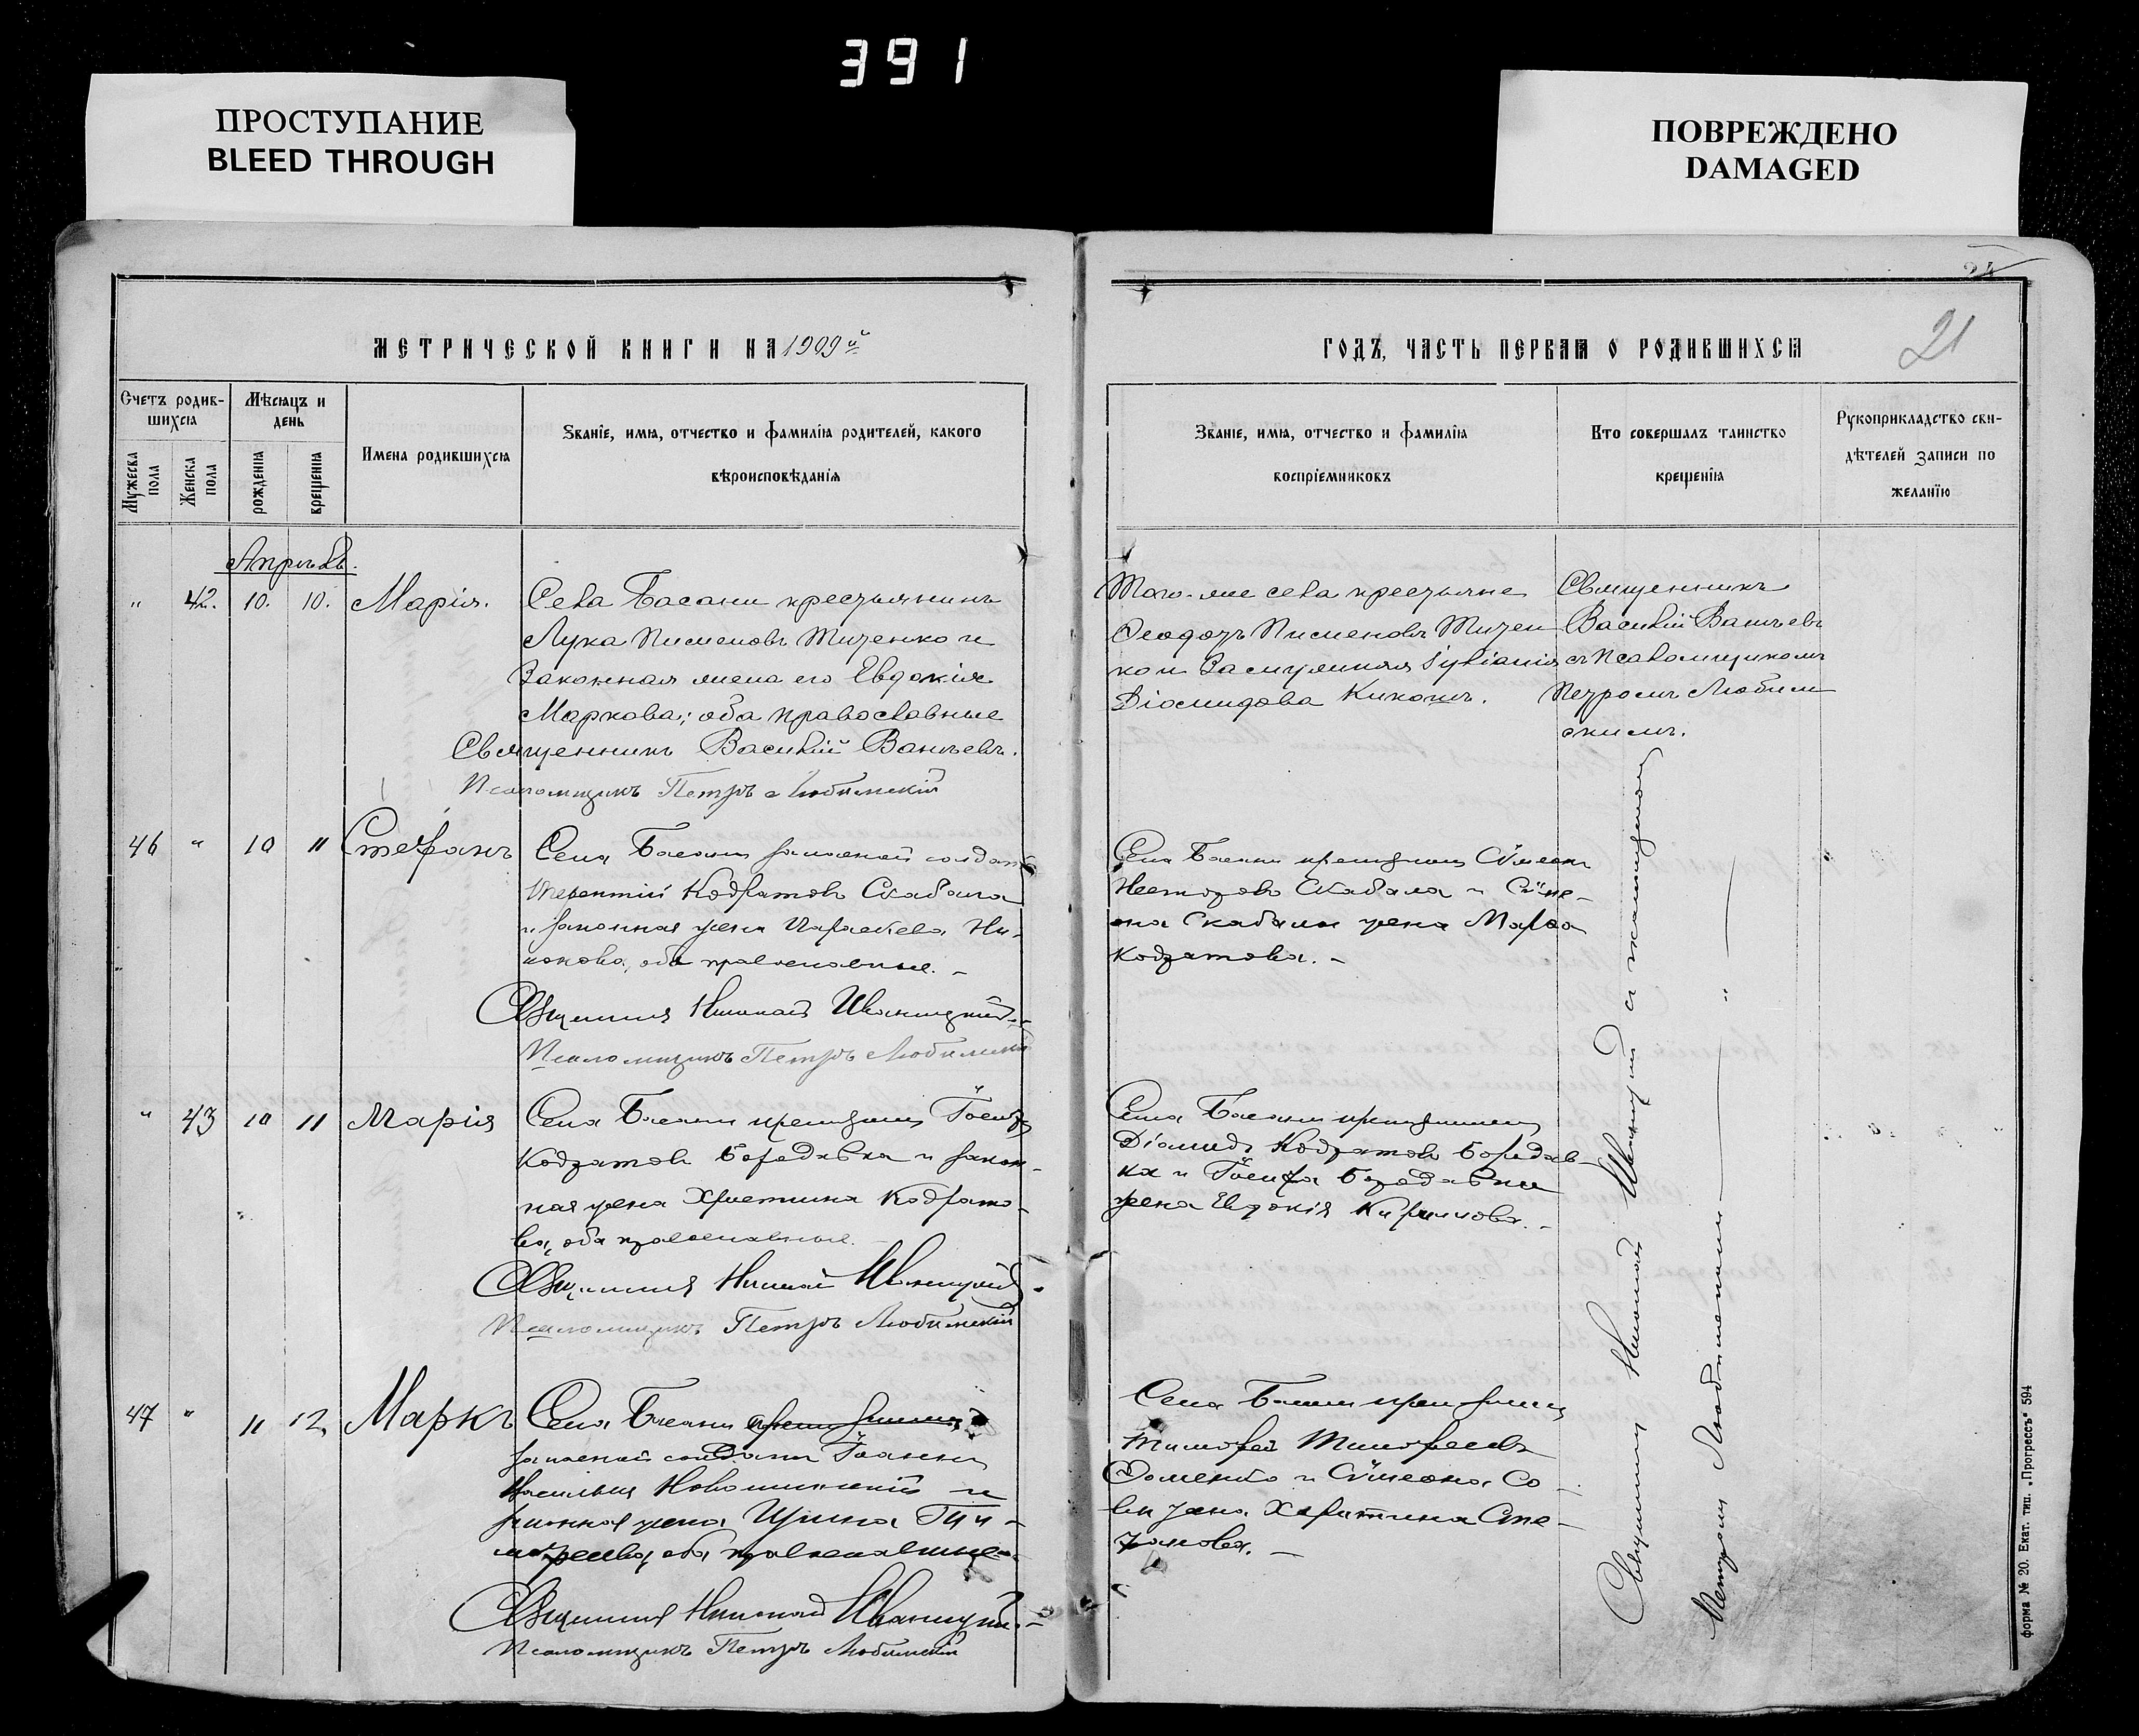 391
ПРОСТУПАНИЕ
BLEED THROUGH
ПОВРЕЖДЕНО
DAMAGED
МЕТРИЧЕСКОЙ КНИГИ НА 1909й
ГОДЪ, ЧАСТЬ ПЕРВАЯ О РОДИВШИХСЯ
21
Счетъ родив-
шихся
Мѣсяцъ и
день
Мужеска
пола
Женска
пола
рожденія
крещенія
Имена родившихся
Званіе, имя, отчество и фамилія родителей, какого
вѣроисповѣданія
Званіе, имя, отчество и фамилія
воспріемниковъ
Кто совершалъ таинство
крещенія
Рукоприкладство сви-
дѣтелей записи по
желанію
Апрѣль.
" 42. 10. 10. Марія.
Села Басани крестьянинъ
Лука Пименовъ Тищенко и
Законная жена его Евдокія
Маркова; оба православные
Священникъ Василій
Псаломщикъ Петръ Любимскій
Того-же села крестьяне
Пименовъ Тищен
ко и
Діомидова
Священникъ
Василій
съ Псаломщикомъ
Петромъ Любим
скимъ.
46 " 10 11 Стефанъ
Села Басани запасной солдатъ
Терентій Кодратовъ Скабала
и законная жена Параскева Ни-
конова, оба православные. -
Священникъ Николай Иваницкій
Псаломщикъ Петръ Любимскій
Села Басани крестьянинъ Сѵмеонъ
Несторовъ Скабала и Сѵме-
она Скабалы жена Марѳа
Кодратова. -
" 43 10 11 Марія
Села Басани крестьянинъ Іосифъ
Кодратовъ Бородавка и закон-
ная жена Христина Кодрато-
ва, оба православные. -
Священникъ Николай Иваницкій
Псаломщикъ Петръ Любимскій
Села Басани крестьянинъ
Діомидъ Кодратовъ Бородав-
ка и Іосифа Бородавки
жена Евдокія Кирилова. -
47 " 11 12 Маркъ
Села Басани крестьянинъ
запасной солдатъ Іоаннъ
и
законная жена Ирина Ти-
моѳеева, оба православные.
Священникъ Николай Иваницкій. -
Псаломщикъ Петръ Любимскій
Села Басани крестьянинъ
Тимоѳей Тимоѳеевъ
и Сѵмеона Со-
вы жена Харитина Сте-
фанова. -
Священникъ Николай Иваницкій съ псаломщикомъ
Петромъ Любимскимъ
форма № 20. Екат. тип. „Прогрессъ" 594